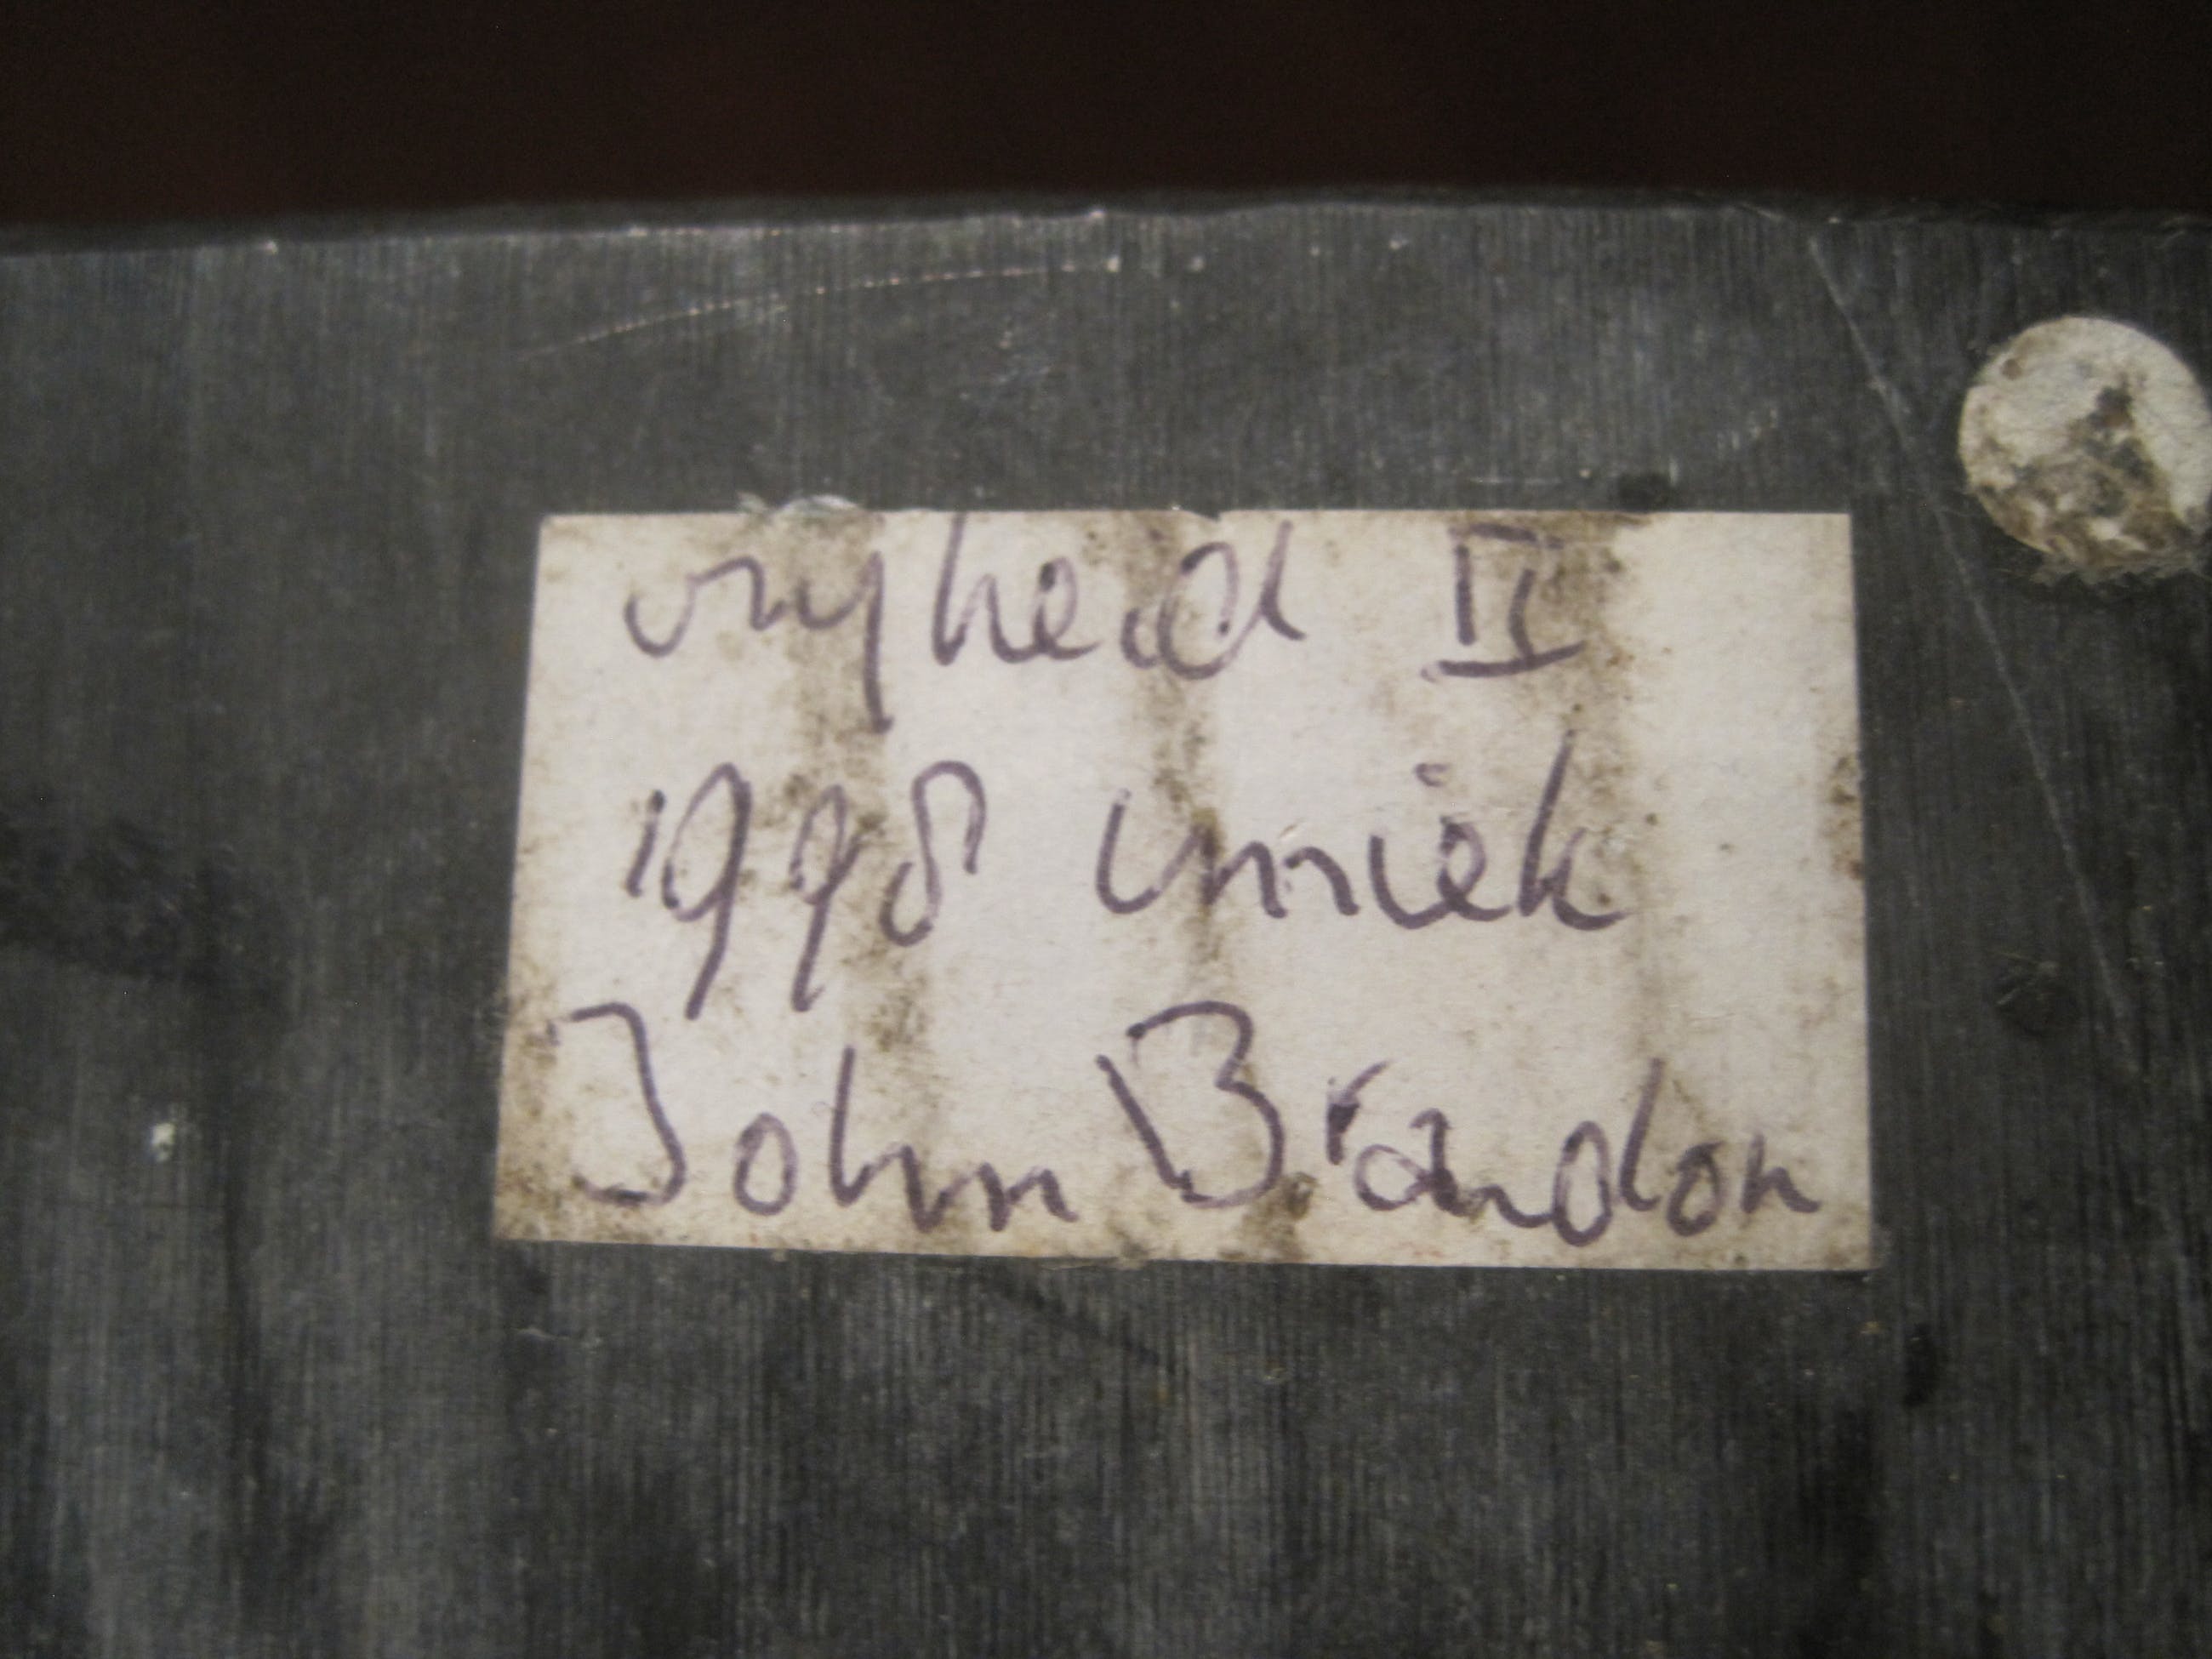 vryheid II
1998 uniek
John Brandon